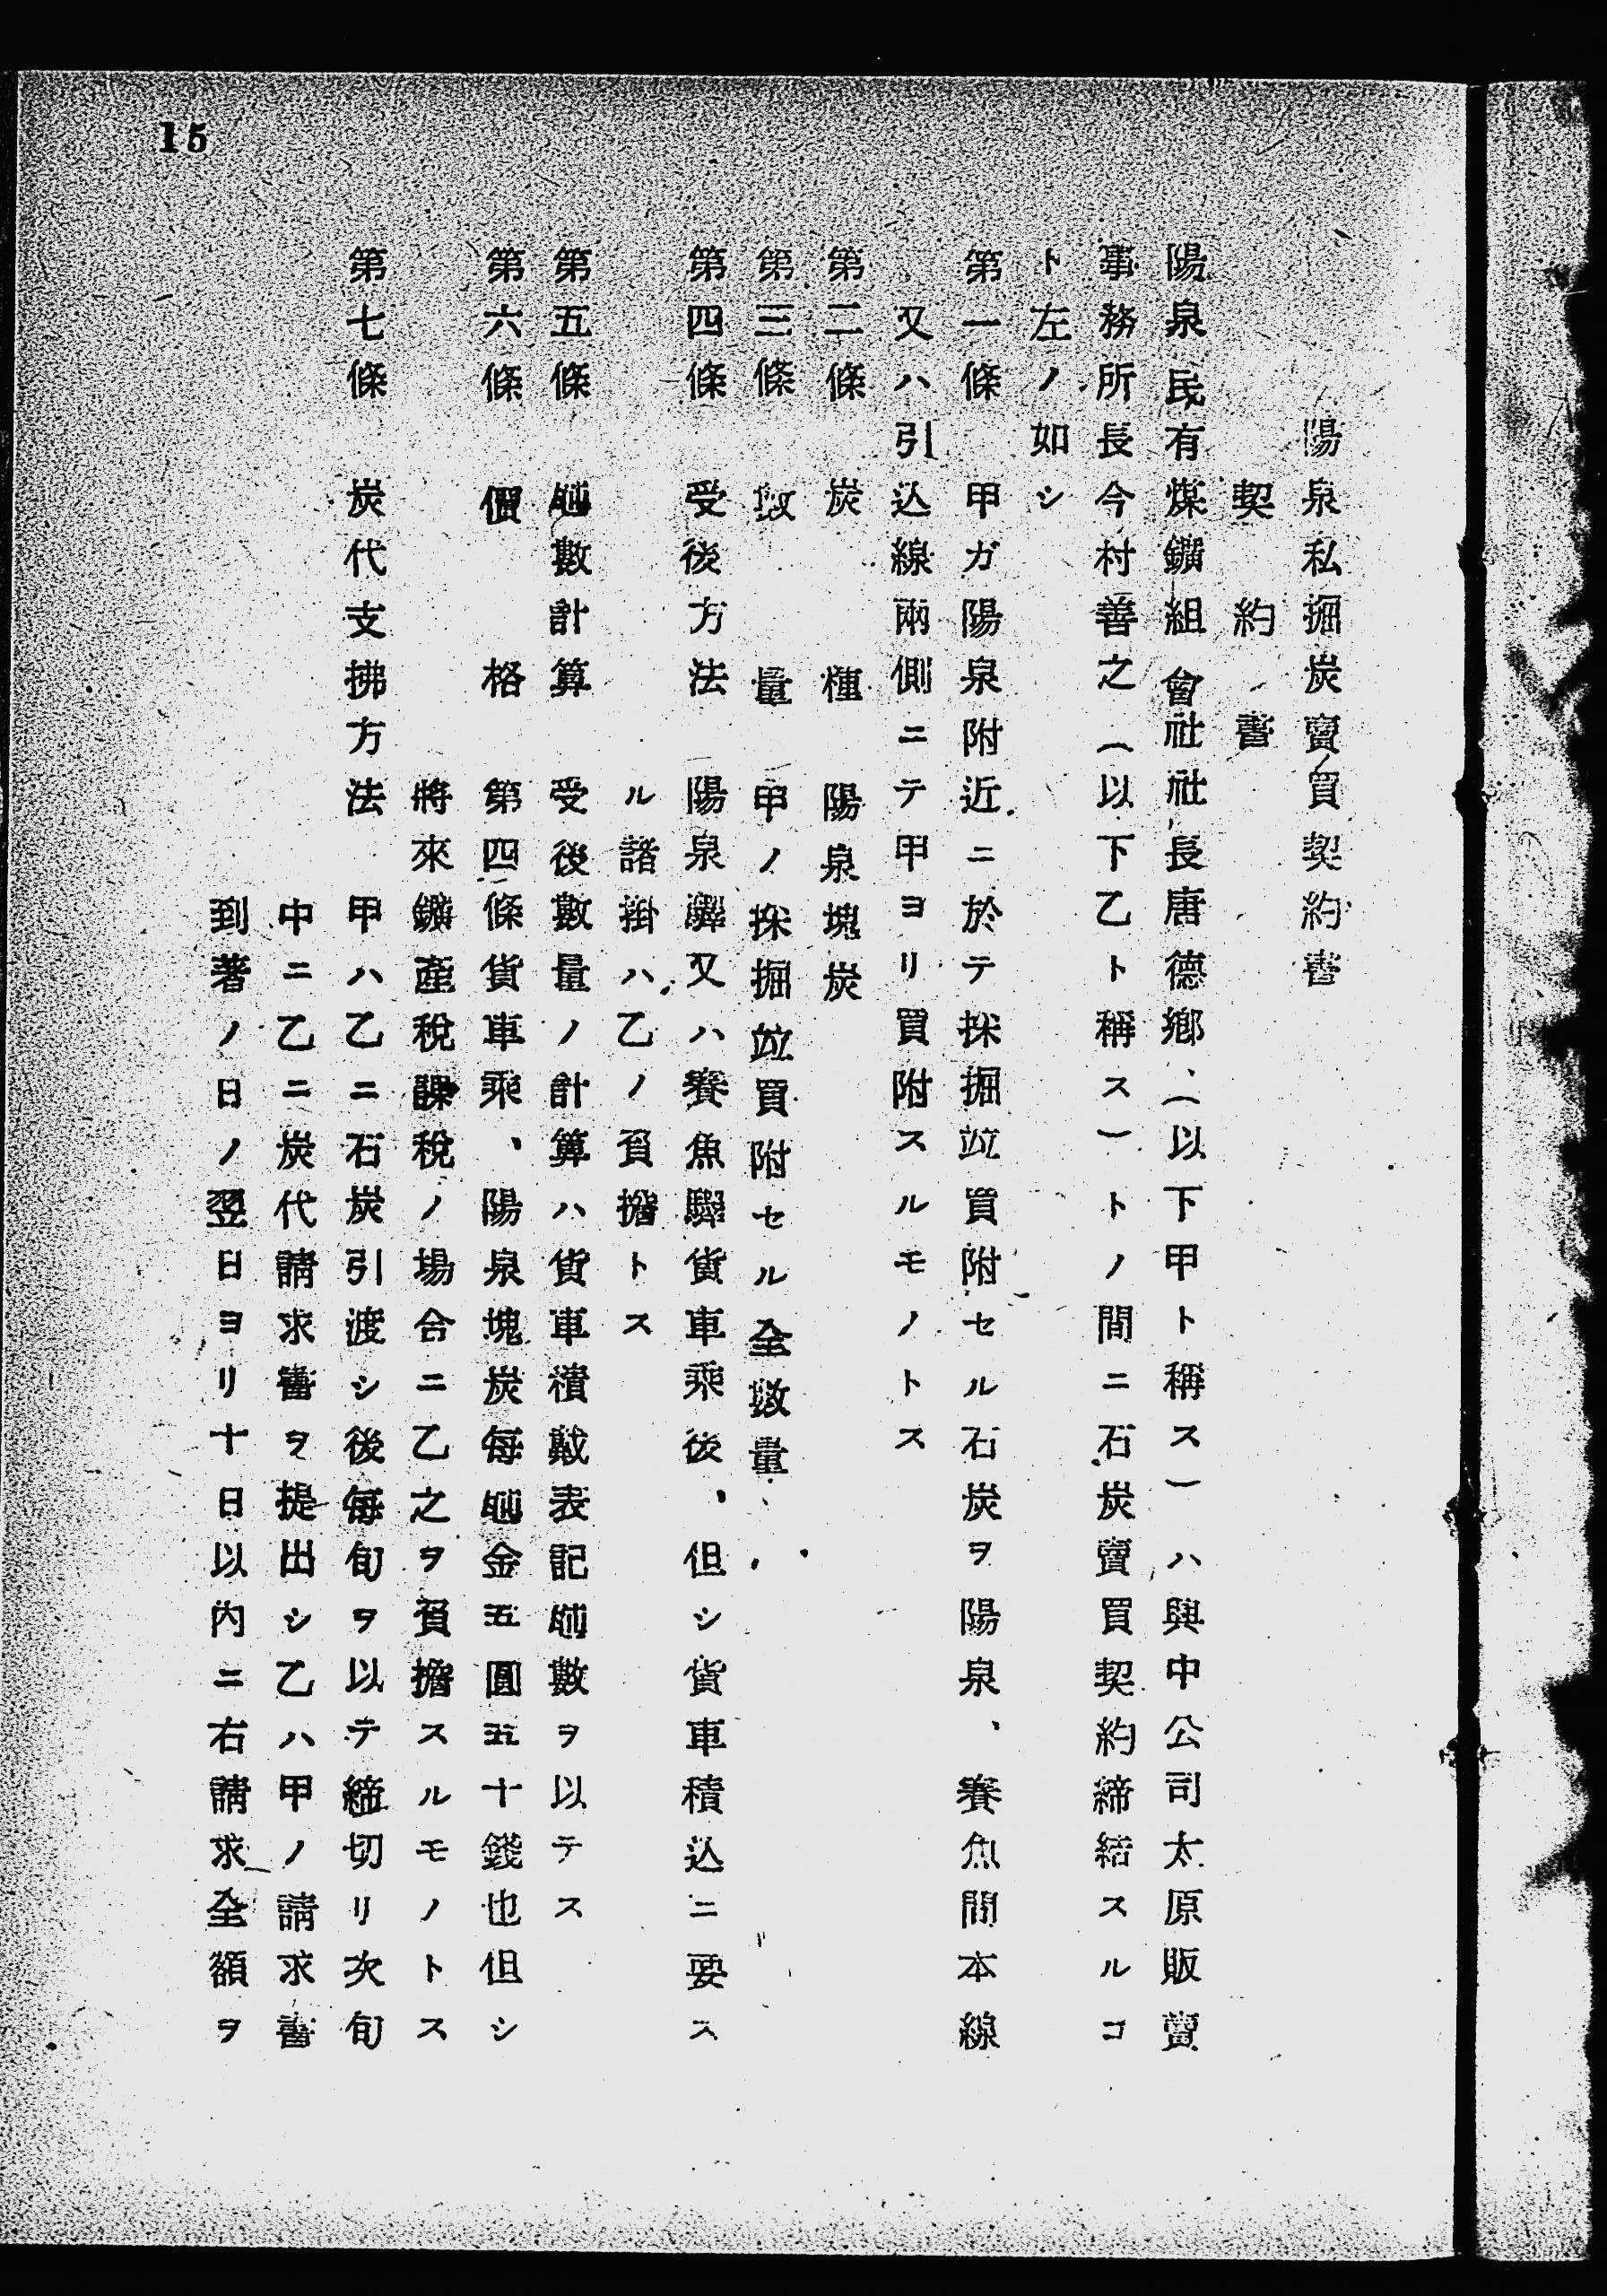 15
陽泉私掘炭賣買契約書
契約書
陽泉民有煤鑛組會社社長唐德鄕、（以下甲ト稱ス）ハ興中公司太原販賣
事務所長今村善之（以下乙ト稱ス）トノ間ニ石炭賣買契約締結スルコ
ト左ノ如シ
第一條　甲ガ陽泉附近ニ於テ採掘竝買附セル石炭ヲ陽泉、賽魚間本線
又ハ引込線兩側ニテ甲ヨリ買附スルモノトス
第二條　炭種　陽泉塊炭
第三條　數量　甲ノ採掘竝買附セル全數量
第四條　受後方法　陽泉驛又ハ賽魚驛貨車乘後、但シ貨車積込ニ要ス
ル諸掛ハ乙ノ負擔トス
第五條　瓲數計算　受後數量ノ計算ハ貨車積載表記瓲數ヲ以テス
第六條　價格　第四條貨車乘、陽泉塊炭每瓲金五圓五十錢也但シ
將來鑛產稅課稅ノ場合ニ乙之ヲ負擔スルモノトス
第七條　炭代支拂方法　甲ハ乙ニ石炭引渡シ後每旬ヲ以テ締切リ次旬
中ニ乙ニ炭代請求書ヲ提出シ乙ハ甲ノ請求書
到著ノ日ノ翌日ヨリ十日以內ニ右請求全額ヲ